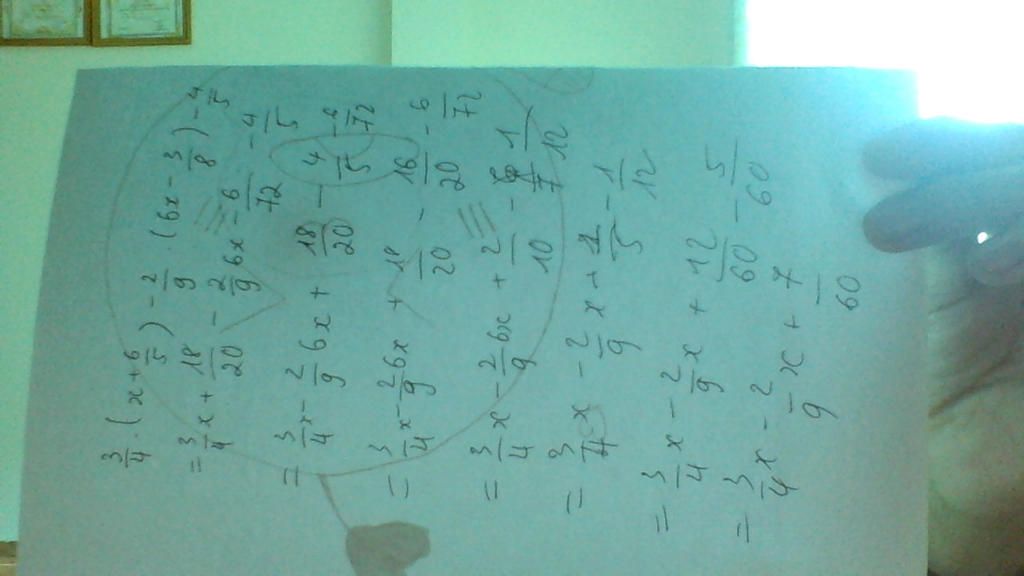 3/4 · (x + 6/5) - 2/9 · (6x - 3/8) - 4/5
= 3/4 x + 18/20 - 2/9 6x - 6/72 - 4/5
= 3/4 x - 2/9 6x + 18/20 - 4/5 - 6/72
= 3/4 x - 2/9 6x + 18/20 - 16/20 - 6/72
= 3/4 x - 2/9 6x + 2/10 - 1/12
= 3/4 x - 2/9 x + 1/5 - 1/12
= 3/4 x - 2/9 x + 12/60 - 5/60
= 3/4 x - 2/9 x + 7/60